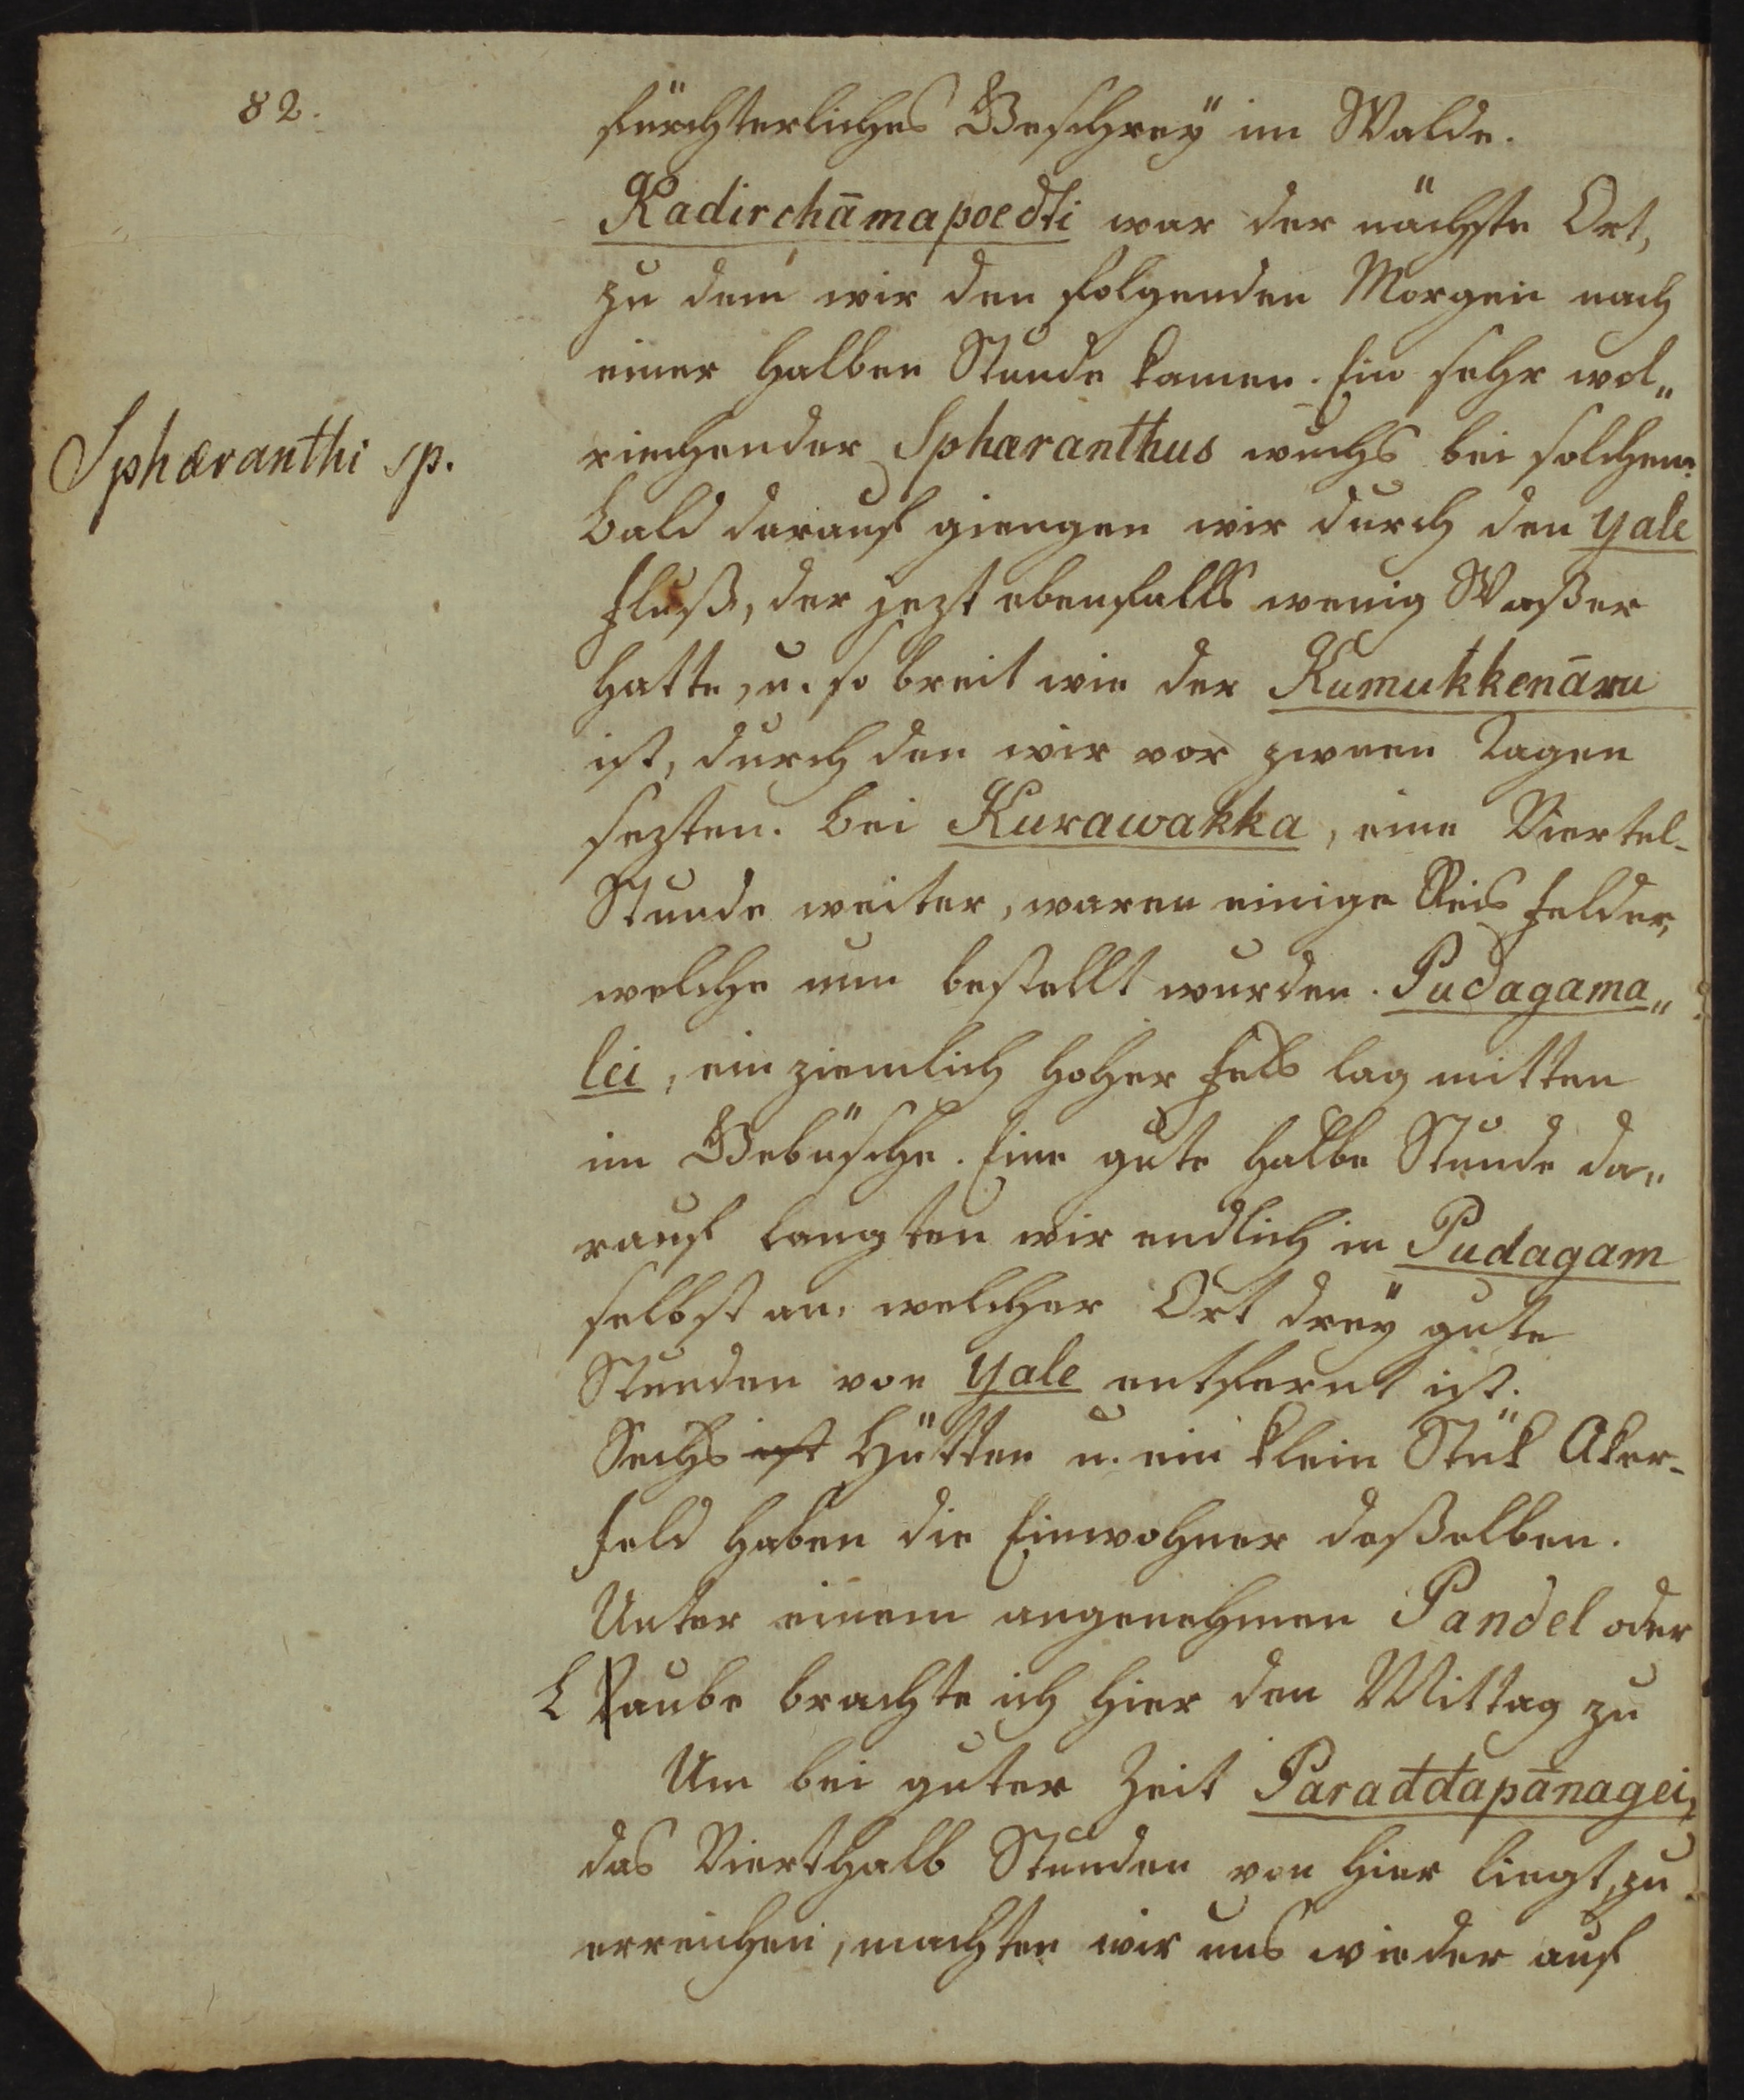 82.
fürchterliches Geschreÿ im Walde.
Kadirchāmapoedti war der nächste Ort,
zu dem wir den folgenden Morgen nach
einer halben Stunde kamen. Ein sehr wol„
Sphæranthi sp.
riechender Sphæranthus wuchs bei solchem.
Bald darauf giengen wir durch den Yale
Fluß, der jezt ebenfalls wenig Waßer
hatte, u. so breit wie der Kumukkenāru
ist, durch den wir vor zween Tagen
sezten. Bei Kurawakka, eine Viertel-
Stunde weiter, waren einige Reis Felder,
welche nun bestellt wurden. Pudagama„
lei, ein ziemlich hoher Fels lag mitten
im Gebüsche. Eine gute halbe Stunde da„
rauf langten wir endlich in Pudagam
selbst an, welcher Ort dreÿ gute
Stunden von Yale entfernt ist.
Sechs ist Hütten u. ein klein Stük Aker-
feld haben die Einwohner deßelben.
Unter einem angenehmen Pandel oder
L aube brachte ich hier den Mittag zu
Um bei guter Zeit Paraddapānagei,
das Vierthalb Stunden von hier liegt, zu
erreichen, machten wir uns wieder auf